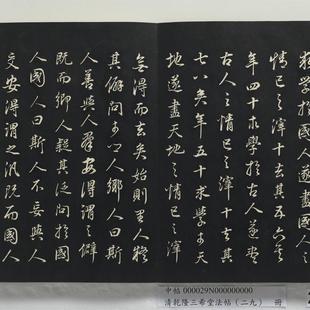 學於國人遂盡國人之
情己之滓十去其五六矣
年四十求學於古人遂盡
古人之情己之滓十去其
七八矣年五十求學於天
地遂盡天地之情己之滓
無得而去矣始則里人疑
其僻問於鄉人鄉人曰斯
人善與人群安得謂之僻
既而鄉人疑其泛問於國
人國人曰斯人不妄與人
交安得謂之汎既而國人
中帖 000029N000000000
清乾隆三希堂法帖(二九) 冊